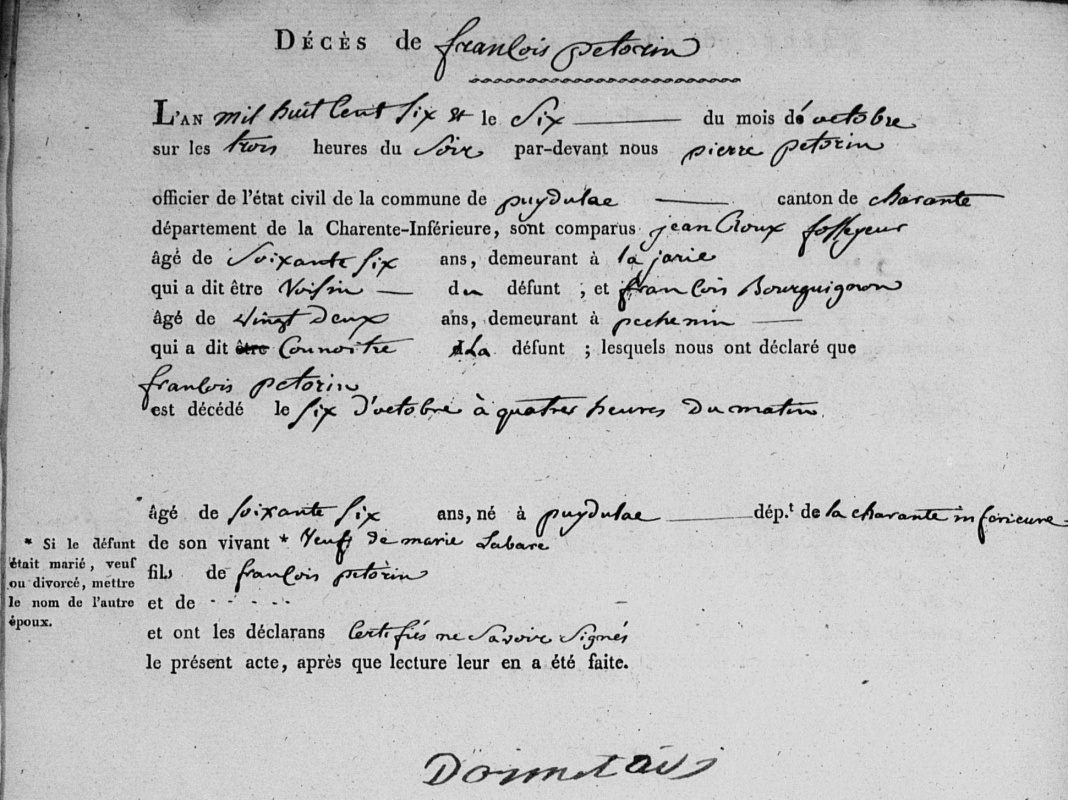 DÉCÈS de françois petorin
L'AN mil huit Cent Six & le Six du mois dé octobre
sur les trois heures du Soir par-devant nous pierre petorin
officier de l'état civil de la commune de puydulac canton de charante
département de la Charente-Inférieure, sont comparus jean Croux fossoyeur
âgé de Soixante Six ans, demeurant à la jarie
qui a dit être Voisin du défunt ; et françois Bourguignon
âgé de Vingt Deux ans, demeurant à pechenin
qui a dit être Connoitre défunt ; lesquels nous ont déclaré que
françois petorin
est décédé le Six d'octobre à quatres heures Du matin
âgé de soixante Six ans, né à puydulac dép.t de la charante inferieure
* Si le défunt était marié, veuf ou divorcé, mettre le nom de l'autre époux.
de son vivant * Veuf de marie Labare
fils de françois petorin
et de - - - - -
et ont les déclarans Certifiés ne Savoir Signés
le présent acte, après que lecture leur en a été faite.